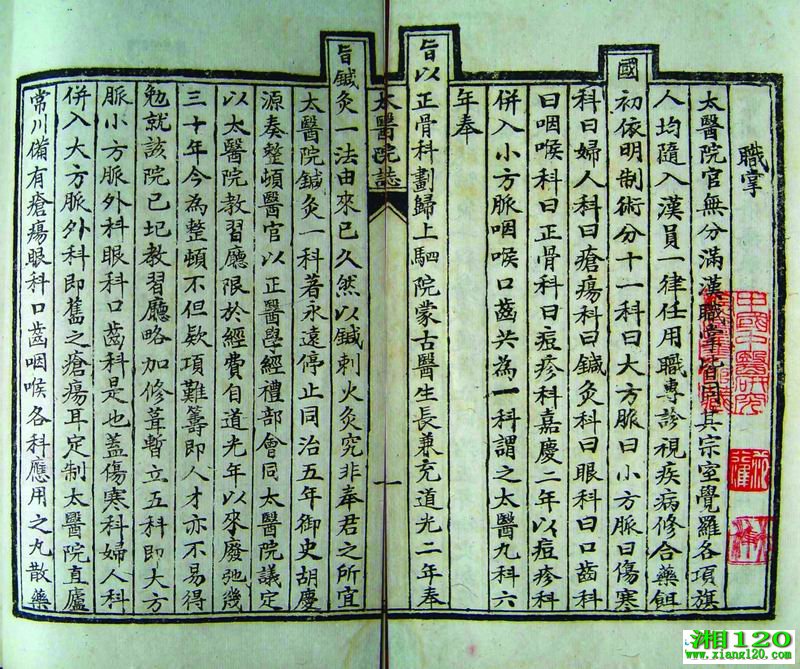 職掌
太醫院官無分滿漢職掌皆同其宗室覺羅各項旗
人均隨入漢員一律任用職專診視疾病修合藥餌
國初依明制術分十一科曰大方脈曰小方脈曰傷寒
科曰婦人科曰瘡瘍科曰鍼灸科曰眼科曰口齒科
曰咽喉科曰正骨科曰痘疹科嘉慶二年以痘疹科
併入小方脈咽喉口齒共為一科謂之太醫九科六
年奉
旨以正骨科劃歸上駟院蒙古醫生長兼充道光二年奉
太醫院誌 一
旨鍼灸一法由來已久然以鍼刺火灸究非奉君之所宜
太醫院鍼灸一科著永遠停止同治五年御史胡慶
源奏整頓醫官以正醫學經禮部會同太醫院議定
以太醫院教習廳限於經費自道光年以來廢弛幾
三十年今為整頓不但欵項難籌即人才亦不易得
勉就該院已圮教習廳略加修葺暫立五科即大方
脈小方脈外科眼科口齒科是也蓋傷寒科婦人科
併入大方脈外科即舊之瘡瘍耳定制太醫院直廬
常川備有瘡瘍眼科口齒咽喉各科應用之丸散藥
中國中醫研究
湘120
www.xiang120.com